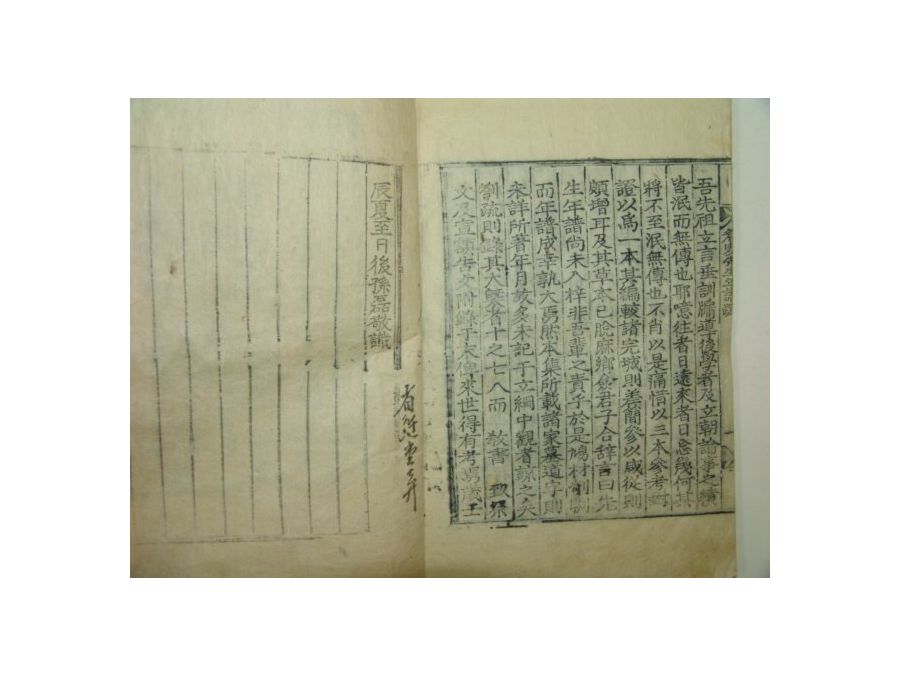 吾先祖立言垂訓牖迪後學者及立朝論事之蹟
皆泯而無傳也耶噫往者日遠來者日忘幾何其
將不至泯無傳也不肖以是痛惜以三本參考
證以爲一本其編較諸完城則差簡參以咸從則
頗增耳及其草本已脫麻鄉僉君子合辭言曰先
生年譜尚未入梓非吾輩之責乎於是鳩材剞劂
而年譜成幸孰大焉然本集所載諸家墓道字則
未詳所著年月故多未記于立綱中觀者諒之矣
劄疏則錄其大槩者十之七八而 教書 致祭
文及宣額告文附錄于末俾來世得有考焉歲壬
辰夏至日後孫磊敬識